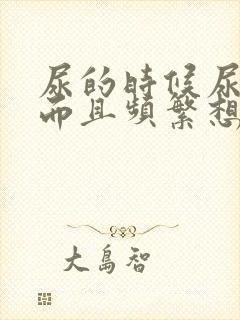 尿的時候尿
而且頻繁想
大島智